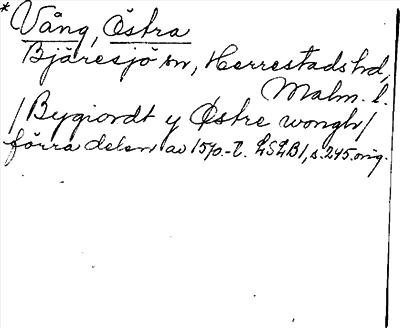 * Vång, Östra
Bjäresjö sn, Herrestads hd,
Malm. l.
/Bygiordt y Østre wongh/
förra delen av 1570-t. LSLB1, s. 245 orig.